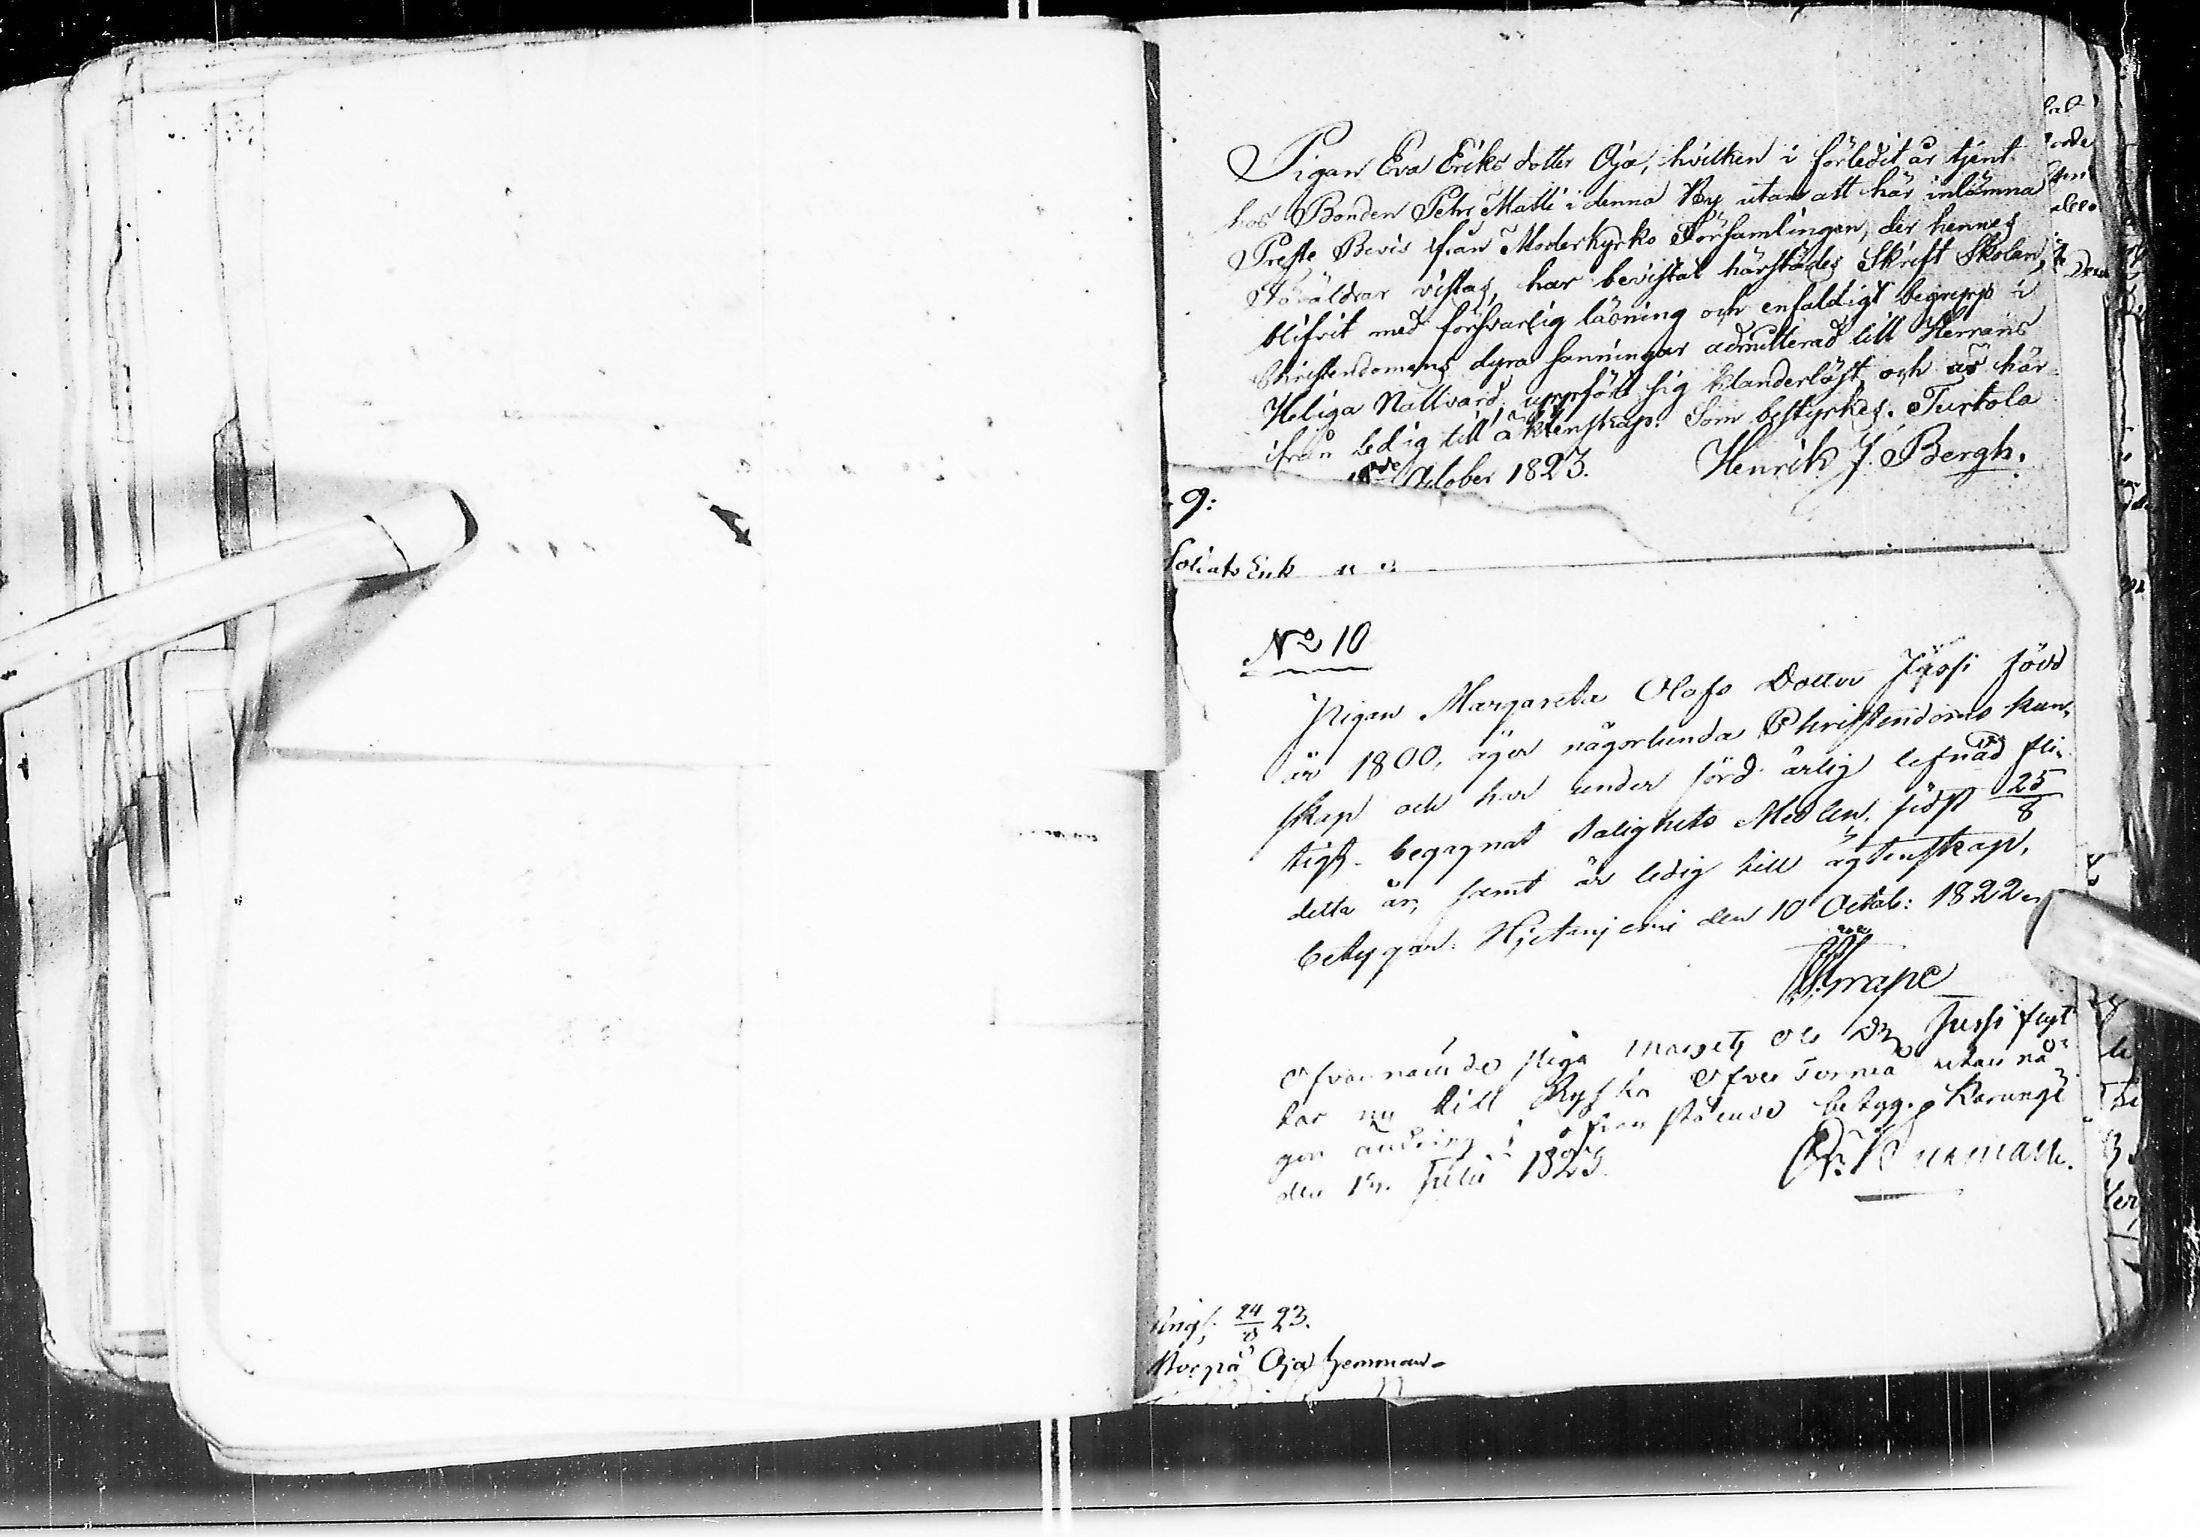 Pigan Eva Eriks dotter Oja, hvilken i förledit år tjent
hos Bonden Petr Matti i denna By utan att här inlämna
Preste Bevis från Moderkyrko Församlingen, der hennes
Föräldrar vistas, har bevistat härstädes Skrift Skolan,
blifvit med försvarlig läsning och enfaldigt begrepp i
Christendomens dyra sanningar admitterad till Herrans
Heliga Nattvard, uppfört sig klanderlöst och är här-
ifrån ledig till äktenskap. Som bestyrkes. Turtola
October 1823. Henrik J. Bergh.
9:
Soldats Enk
No 10
Pigan Margareta Olofs Dotter Jussi född
år 1800, äger någorlunda Christendoms kun-
skap och har under förd ärlig lefnad fli-
tigt begagnat Salighets Medlen, sidst 25/8
detta år, samt är ledig till ägtenskap,
betygar. Hjetanjemi den 10 Octob: 1822
Grape
Ofvannämde piga Margeta Ols Dr Jussi flyt
tar nu till Ryska Öfver Torneå utan nå
gon ändring i ofvan stående betyg. Karungi
den Julii 1823.
24/8 23.
Oja hemman